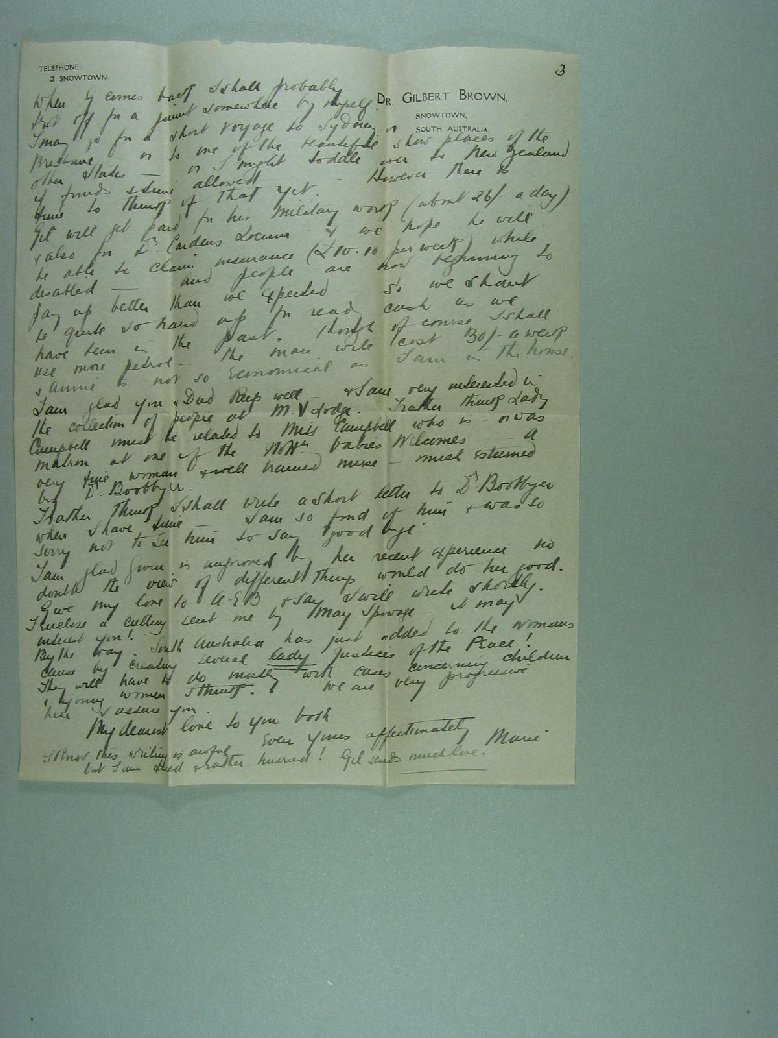 3
TELEPHONE:
2 SNOWTOWN.
DR. GILBERT BROWN,
SNOWTOWN,
SOUTH AUSTRALIA
When G comes back I shall probably
but off for a jaunt somewhere by myself.
I may go for a short voyage to Sydney or
Brisbane or to one of the beautiful show places of the
other States — or I might toddle over to New Zealand
if funds & time allowed — However there is
time to think of that yet. —
Gil will get paid for his military work (about 26/- a day)
& also for Dr Cardens Locum & we hope he will
be able to claim insurance (£10.10 per week) while
disabled — and people are now beginning to
pay up better than we expected so we shant
be quite so hard up for ready cash as we
have been in the past. Though of course I shall
use more petrol — the man will cost 30/- a week
& Annie is not so economical as I am in the house.
I am glad you & Dad keep well — & I am very interested in
the collection of people at M. V Lodge. I rather think Lady
Campbell must be related to Miss Campbell who is — or was
matron at one of the Nottm babies Welcomes — a
very fine woman & well trained nurse — much esteemed
by Dr Boobbyer.
I rather think I shall write a short letter to Dr Boobbyer
when I have time — I am so fond of him & was so
sorry not to see him to say good bye.
I am glad Gwen is improved by her recent experience no
doubt the view of different things would do her good.
Give my love to U-E B & say I will write shortly.
I enclose a cutting sent me by May it may
interest you!
By the way. South Australia has just added to the womans
cause by creating several lady justices of the Peace!
They will have to do mostly with cases concerning children
& young women I think. We are very progressive
here I assure you.
My dearest love to you both
Ever yours affectionately
Marie
I know this writing is awful
but I am tired & rather hurried! Gil sends much love.